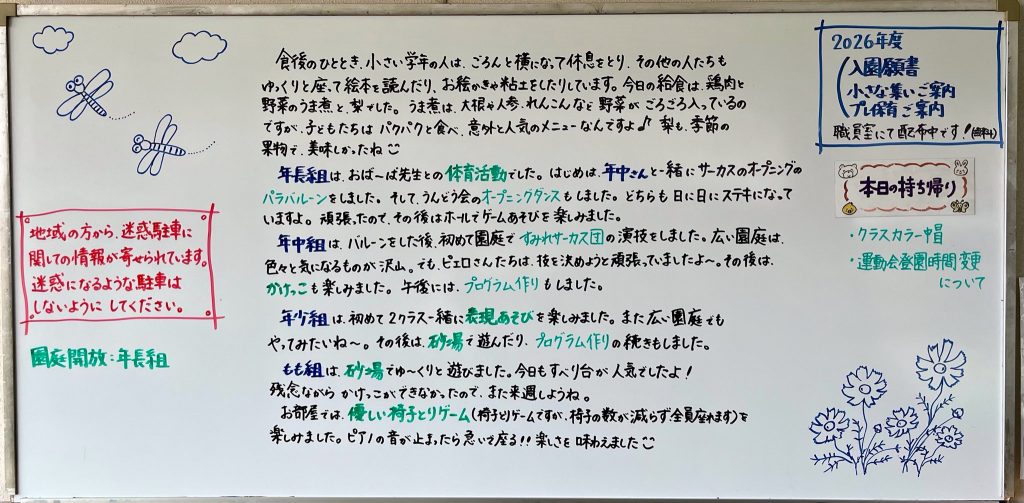 食後のひととき、小さい学年の人は、ごろんと横になって休息をとり、その他の人たちも
ゆっくりと座って絵本を読んだり、お絵かきや粘土をしたりしています。今日の給食は、鶏肉と
野菜のうま煮と、梨でした。うま煮は、大根や人参、れんこんなど野菜がごろごろ入っているの
ですが、子どもたちはパクパクと食べ、意外と人気のメニューなんですよ♪梨も、季節の
果物で、美味しかったね
年長組は、おばーば先生との体育活動でした。はじめは、年中さんと一緒にサーカスのオープニングの
パラバルーンをしました。そして、うんどう会のオープニングダンスもしました。どちらも日に日にステキになって
いますよ。頑張ったので、その後はホールでゲームあそびを楽しみました。
年中組は、バルーンをした後、初めて園庭ですみれサーカス団の演技をしました。広い園庭は、
色々と気になるものが沢山。でも、ピエロさんたちは、技を決めようと頑張っていましたよ〜。その後は、
かけっこも楽しみました。午後には、プログラム作りもしました。
年少組は、初めて2クラス一緒に表現あそびを楽しみました。また広い園庭でも
やってみたいね〜。その後は、砂場で遊んだり、プログラム作りの続きもしました。
もも組は、砂場でゆ〜くりと遊びました。今日もすべり台が人気でしたよ!
残念ながらかけっこができなかったので、また来週しようね。
お部屋では、優しい椅子とりゲーム(椅子とりゲームですが、椅子の数が減らず全員座れます)を
楽しみました。ピアノの音が止まったら急いで座る!!楽しさを味わえました
地域の方から、迷惑駐車に
関しての情報が寄せられています。
迷惑になるような駐車は
しないようにしてください。
園庭開放:年長組
2026年度
入園願書
小さな集いご案内
プレ保育ご案内
職員室にて配布中です!
本日の持ち帰り
・クラスカラー帽
・運動会登園時間変更
について